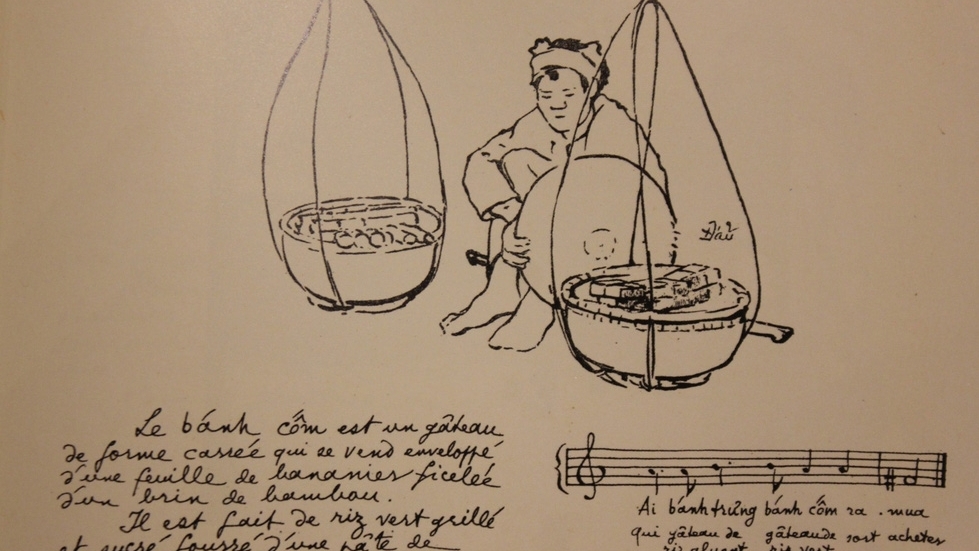 Đẩu
Le bánh cốm est un gâteau
de forme carrée qui se vend enveloppé
d'une feuille de bananier ficelée
d'un brin de bambou.
Il est fait de riz vert grillé
et sucré fourré d'une pâte de
Ai bánh trưng bánh cốm ra . mua
qui gâteau de gâteau de sort acheter
riz gluant riz vert